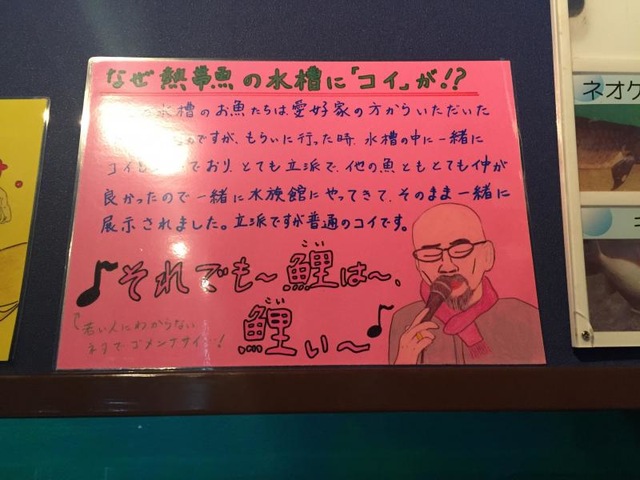 なぜ熱帯魚の水槽に「コイ」が!?
水槽のお魚たちは愛好家の方からいただいた
ですが、もらいに行った時、水槽の中に一緒に
コイも おり、とても立派で、他の魚ともとても仲が
良かったので一緒に水族館にやってきて、そのまま一緒に
展示されました。立派ですが普通のコイです。
♪それでも〜鯉は〜、
こい
鯉い〜♪
こい
若い人にわからない
ネタで、ゴメンナサイ!
ネオケ